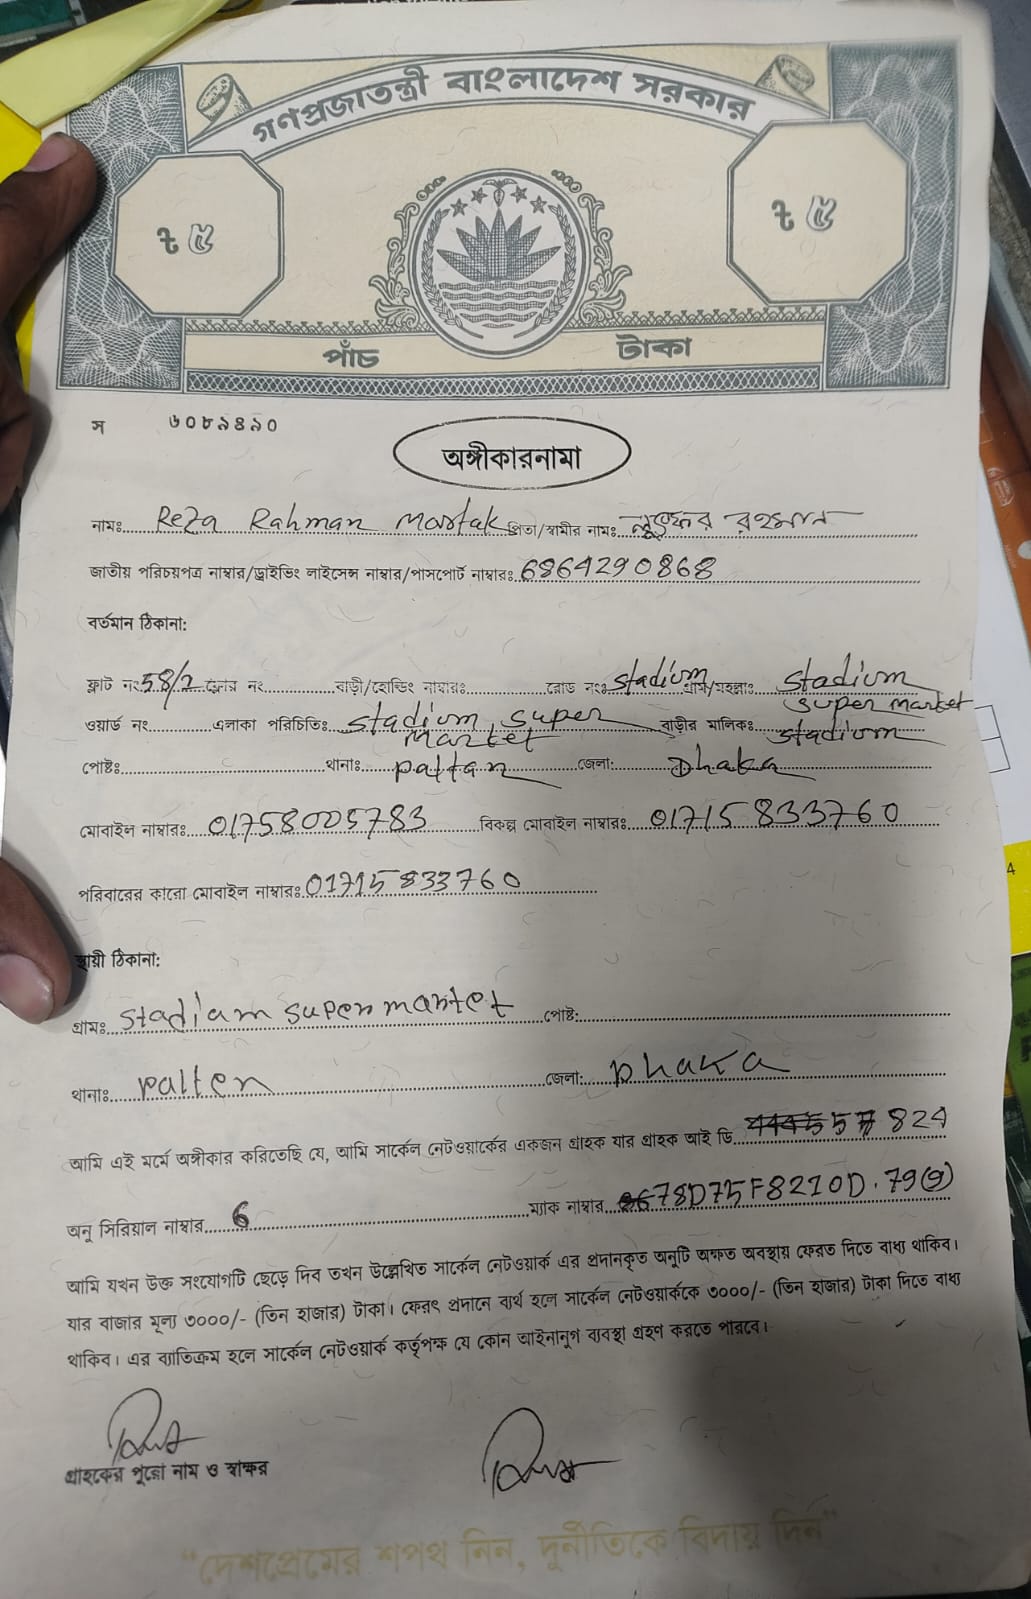 গণপ্রজাতন্ত্রী বাংলাদেশ সরকার
ট ৫
ট ৫
পাঁচ টাকা
স ৬০৮৯৪৯০
অঙ্গীকারনামা
নামঃ Reza Rahman Mostak পিতা/স্বামীর নামঃ লুৎফর রহমান
জাতীয় পরিচয়পত্র নাম্বার/ড্রাইভিং লাইসেন্স নাম্বার/পাসপোর্ট নাম্বারঃ 6864290868
বর্তমান ঠিকানা:
ফ্লাট নং 58/2 ফ্লোর নং বাড়ী/হোল্ডিং নাম্বারঃ রোড নংঃ stadium গ্রাম/মহল্লাঃ stadium super market
ওয়ার্ড নং এলাকা পরিচিতিঃ stadium super market বাড়ীর মালিকঃ stadium
পোষ্টঃ থানাঃ paltan জেলা: Dhaka
মোবাইল নাম্বারঃ 01758005783 বিকল্প মোবাইল নাম্বারঃ 01715833760
পরিবারের কারো মোবাইল নাম্বারঃ 01715833760
স্থায়ী ঠিকানা:
গ্রামঃ stadium super market পোষ্ট:
থানাঃ palten জেলা: Dhaka
আমি এই মর্মে অঙ্গীকার করিতেছি যে, আমি সার্কেল নেটওয়ার্কের একজন গ্রাহক যার গ্রাহক আই ডি 824
অনু সিরিয়াল নাম্বার 6 ম্যাক নাম্বার 78D75F8210D.79(9)
আমি যখন উক্ত সংযোগটি ছেড়ে দিব তখন উল্লেখিত সার্কেল নেটওয়ার্ক এর প্রদানকৃত অনুটি অক্ষত অবস্থায় ফেরত দিতে বাধ্য থাকিব।
যার বাজার মূল্য ৩০০০/- (তিন হাজার) টাকা। ফেরৎ প্রদানে ব্যর্থ হলে সার্কেল নেটওয়ার্ককে ৩০০০/- (তিন হাজার) টাকা দিতে বাধ্য
থাকিব। এর ব্যাতিক্রম হলে সার্কেল নেটওয়ার্ক কর্তৃপক্ষ যে কোন আইনানুগ ব্যবস্থা গ্রহণ করতে পারবে।
গ্রাহকের পুরো নাম ও স্বাক্ষর
"দেশপ্রেমের শপথ নিন, দুর্নীতিকে বিদায় দিন"